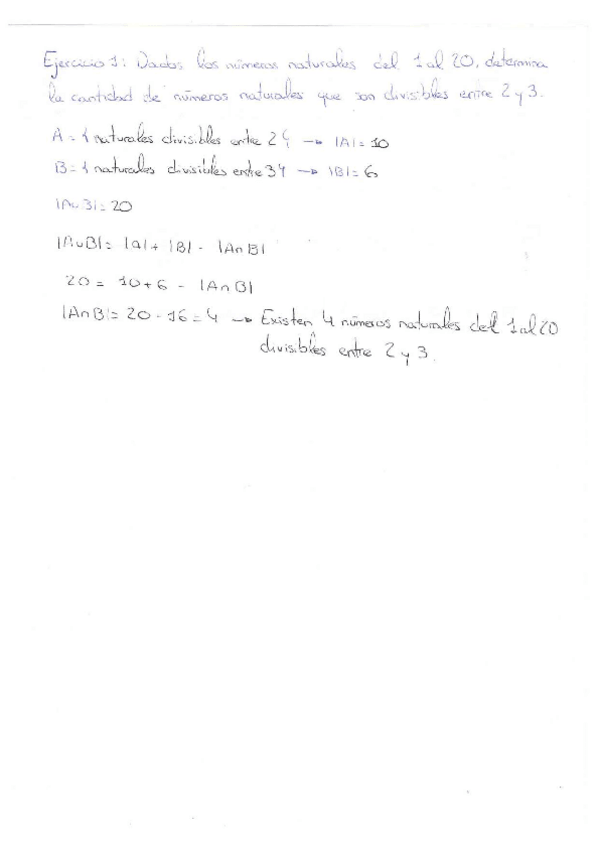 Ejercicio 1: Dados los números naturales del 1 al 20, determina
la cantidad de números naturales que son divisibles entre 2 y 3.
A = { naturales divisibles entre 2 } → |A| = 10
B = { naturales divisibles entre 3 } → |B| = 6
|A∪B| = 20
|A∪B| = |a| + |B| - |A∩B|
20 = 10 + 6 - |A∩B|
|A∩B| = 20 - 16 = 4 → Existen 4 números naturales del 1 al 20
divisibles entre 2 y 3.